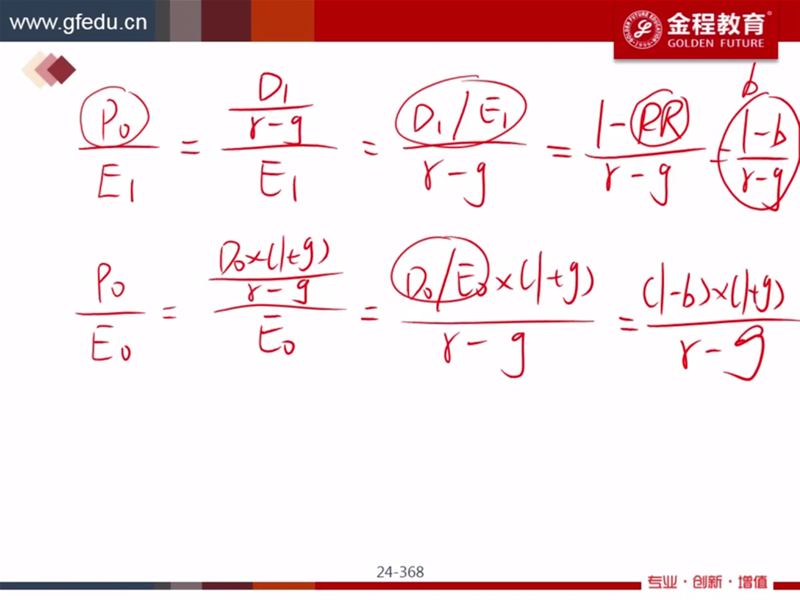 www.gfedu.cn
金程教育
GOLDEN FUTURE
P₀/E₁ = (D₁/(r-g))/E₁ = (D₁/E₁)/(r-g) = (1-RR)/(r-g) = (1-b)/(r-g)
b
P₀/E₀ = (D₀×(1+g)/(r-g))/E₀ = (D₀/E₀×(1+g))/(r-g) = ((1-b)×(1+g))/(r-g)
24-368
专业·创新·增值